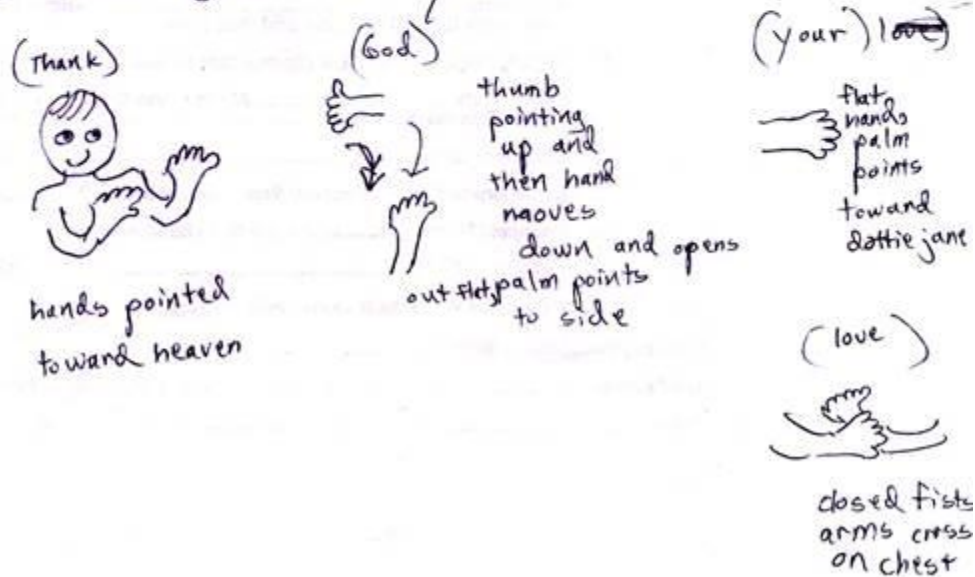 (Thank)
hands pointed
toward heaven
(God)
thumb
pointing
up and
then hand
naoves
down and opens
out flat, palm points
to side
(your) love)
flat
hands
palm
points
toward
dottie jane
(love)
closed fists
arms cross
on chest